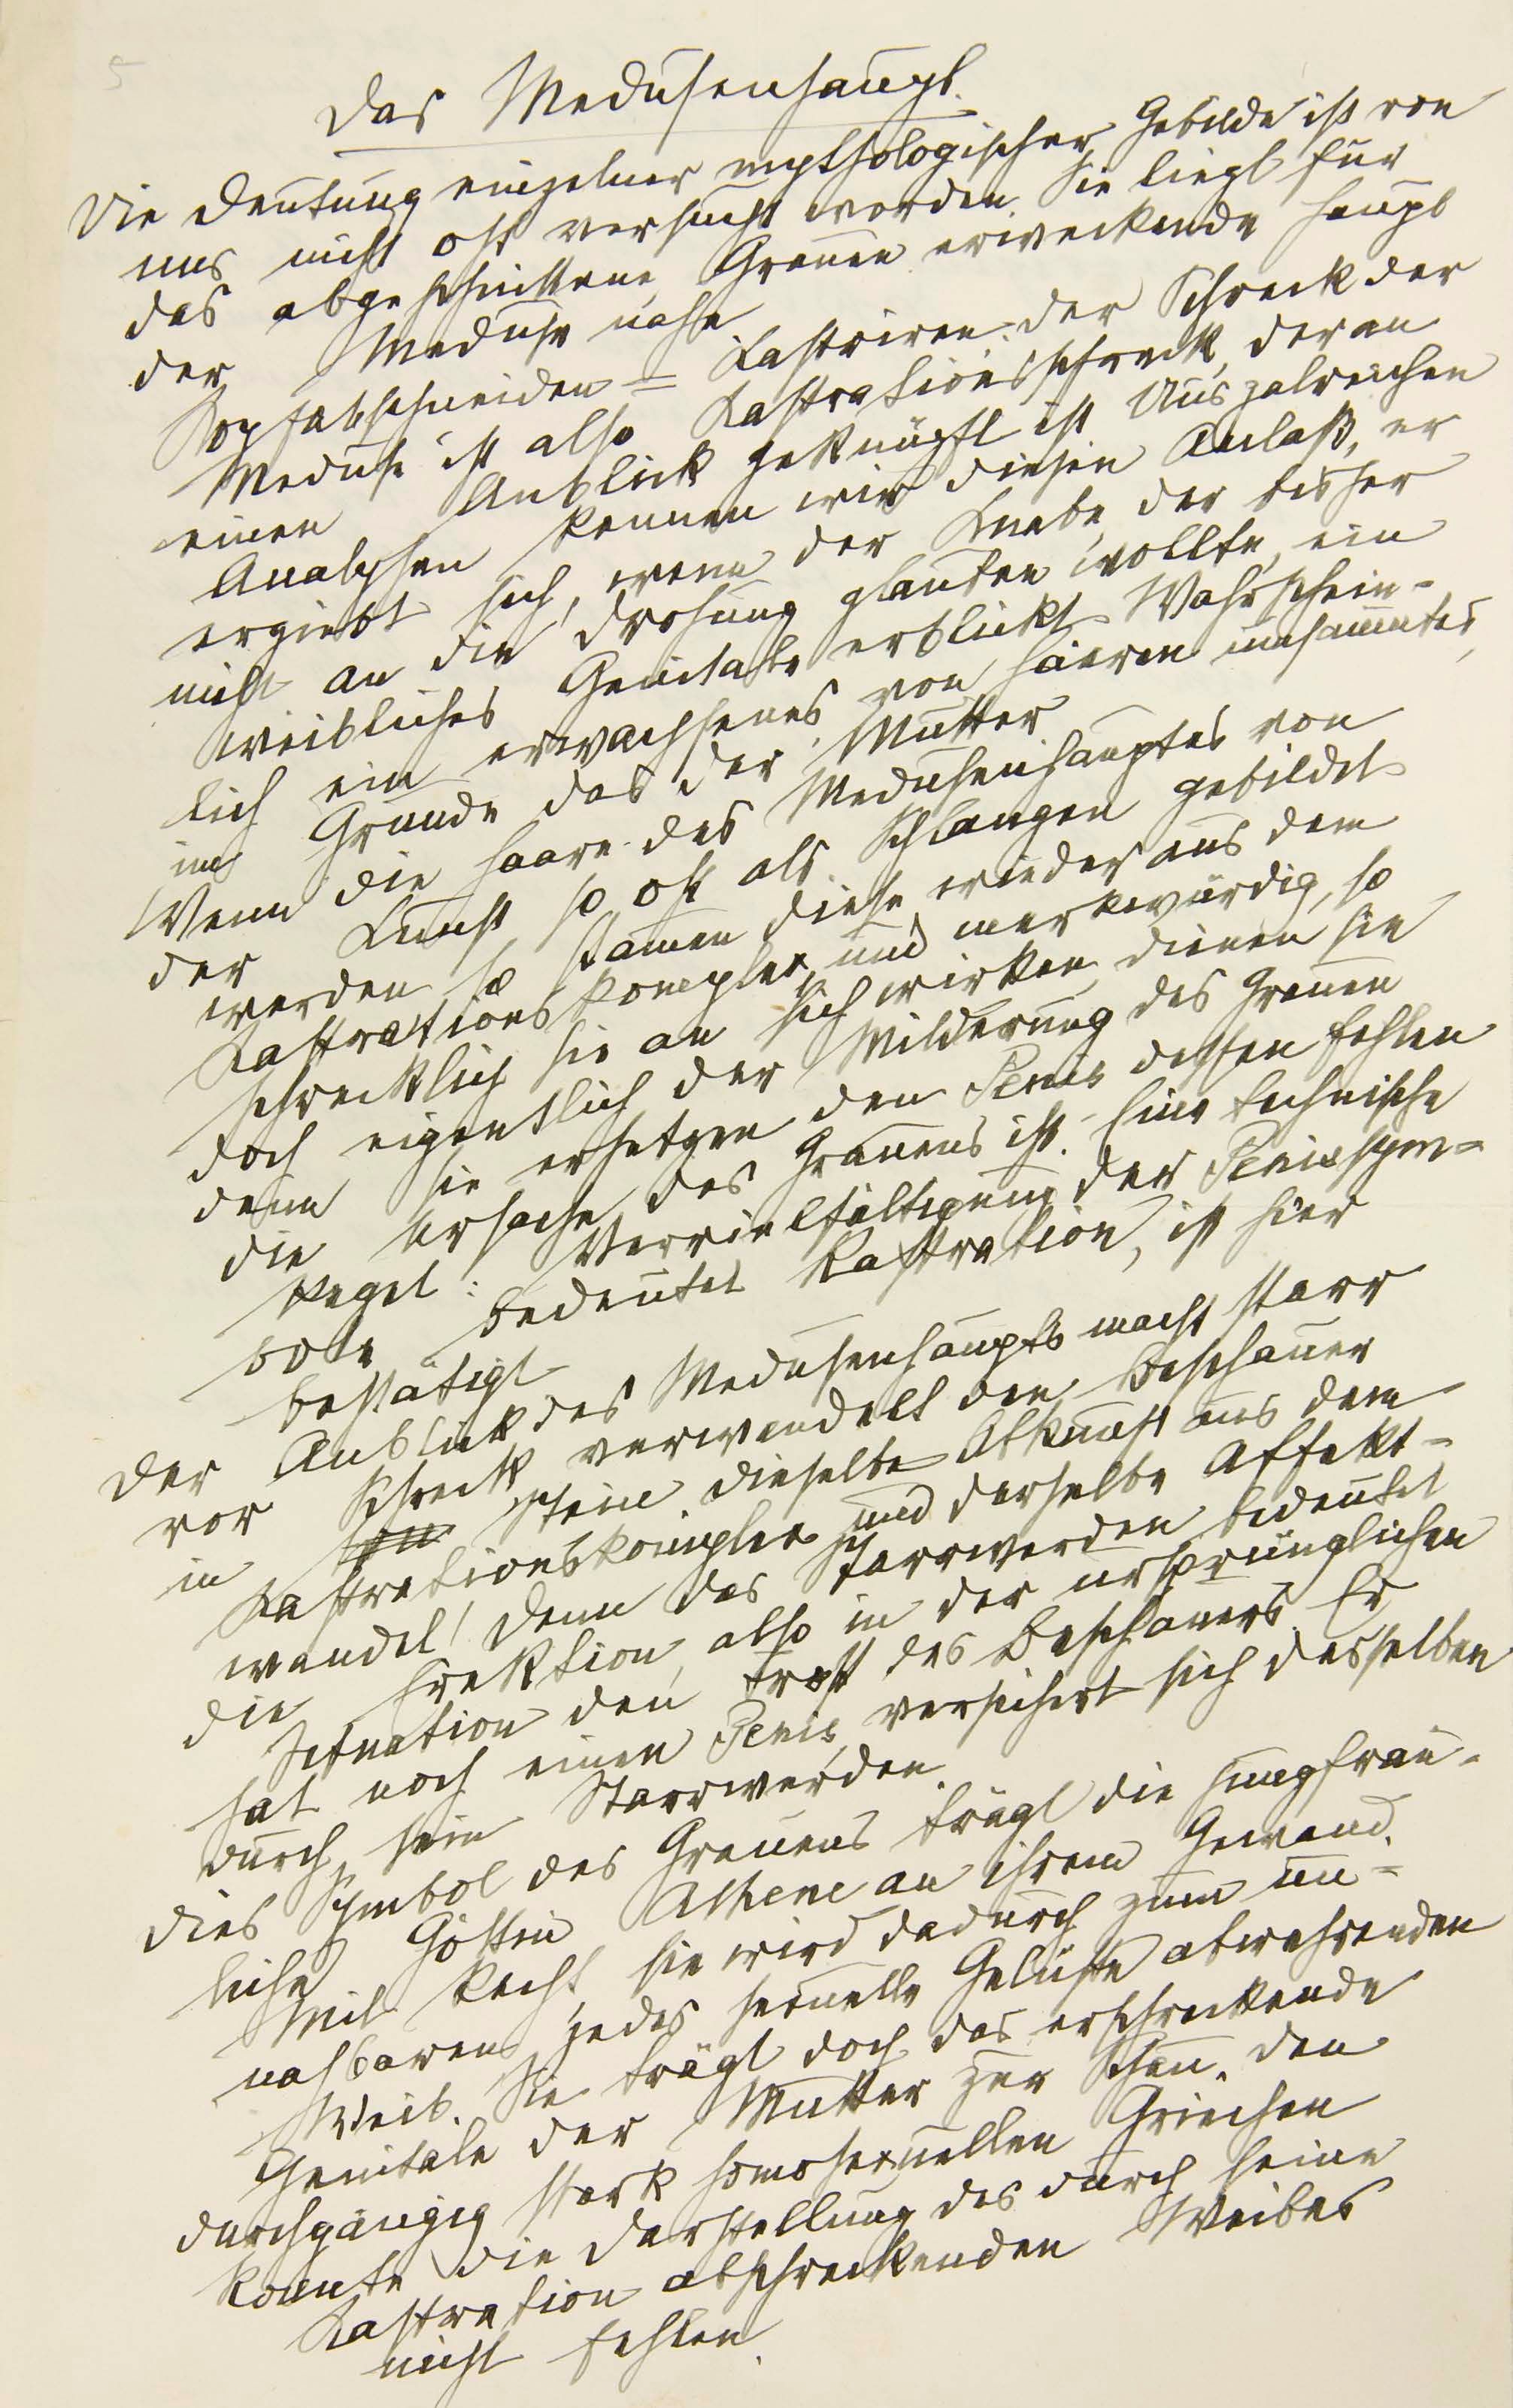 5
Das Medusenhaupt.
Die Deutung einzelner mythologischer Gebilde ist von
uns nicht oft versucht worden. Sie liegt für
das abgeschnittene, Grauen erweckende Haupt
der Meduse nahe.
Kopfabschneiden = Kastriren. Der Schreck der
Meduse ist also Kastrationsschreck, der an
einen Anblick geknüpft ist. Aus zalreichen
Analysen kennen wir diesen Anlaß, er
ergiebt sich, wenn der Knabe, der bisher
nicht an die Drohung glauben wollte, ein
weibliches Genitale erblickt. Wahrschein-
lich ein erwachsenes von Haaren umsäumtes,
im Grunde das der Mutter.
Wenn die Haare des Medusenhauptes von
der Kunst so oft als Schlangen gebildet
werden, so stamen diese wieder aus dem
Kastrationskomplex und merkwürdig, so
schrecklich sie an sich wirken, dienen sie
doch eigentlich der Milderung des Grauens
denn sie ersetzen den Penis dessen Fehlen
die Ursache des Grauens ist. Eine technische
Regel: Vervielfältigung der Penissym-
bole bedeutet Kastration, ist hier
bestätigt.
Der Anblick des Medusenhaupts macht starr
vor Schreck, verwandelt den Beschauer
in Stein. Dieselbe Abkunft aus dem
Kastrationskomplex und derselbe Affekt-
wandel! Denn das Starrwerden bedeutet
die Erektion, also in der ursprünglichen
Situation den Trost des Beschauers. Er
hat noch einen Penis, versichert sich desselben
durch sein Starrwerden.
Dies Symbol des Grauens trägt die jungfräu-
liche Göttin Athene an ihrem Gewand.
Mit Recht, sie wird dadurch zum un-
nahbaren, jedes sexuelle Gelüste abwehrenden
Weib. Sie trägt doch das erschreckende
Genitale der Mutter zur Schau. Den
durchgängig stark homosexuellen Griechen
konnte die Darstellung des durch seine
Kastration abschreckenden Weibes
nicht fehlen.